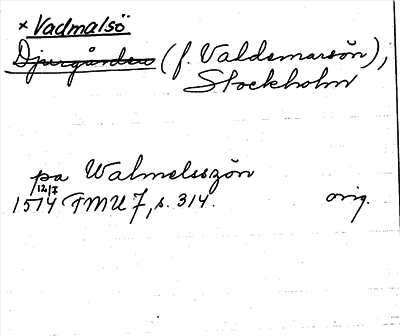 × Vadmalsö
Djurgården (f. Valdemarsön),
Stockholm
pa Walmelsszön
12/7
1514 FMU 7, s. 314. orig.